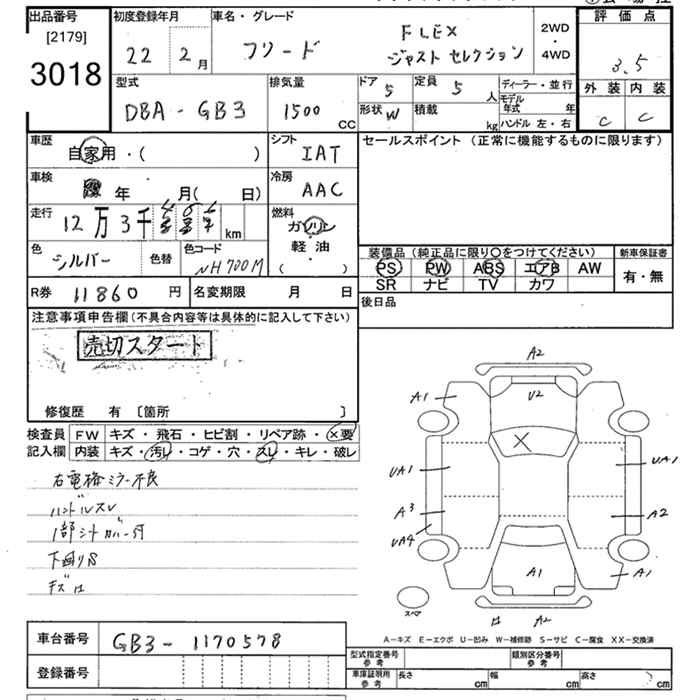 出品番号 初度登録年月 車名・グレード 評価点
[2179] 22 2月 フリード FLEX 2WD・4WD
3018 ジャスト セレクション 3.5
外装 内装
C C
型式 排気量 ドア 5 定員 5人 ディーラー・並行
DBA-GB3 1500cc 形状 W 積載 kg モデル年式 年
ハンドル 左・右
車歴 自家用・( ) シフト IAT セールスポイント (正常に機能するものに限ります)
車検 年 月( 日) 冷房 AAC
走行 12万3千 km 燃料 ガソリン
軽油
( )
色 シルバー 色替 色コード NH700M
装備品 (純正品に限り○をつけてください) 新車保証書
PS PW ABS エアB AW 有・無
SR ナビ TV カワ
R券 11860円 名変期限 月 日 後日品
注意事項申告欄(不具合内容等は具体的に記入して下さい)
売切スタート
修復歴 有 〔箇所 〕
検査員 FW キズ・飛石・ヒビ割・リペア跡・×要
記入欄 内装 キズ・汚レ・コゲ・穴・スレ・キレ・破レ
右電格ミラー不良
ハンドルスレ
1部シートカバー付
下廻りS
キズ凹
A2
A1 U2
X
UA1 UA1
A3 A2
UA4
A1 A1
スペア A2
A-キズ E-エクボ U-凹み W-補修跡 S-サビ C-腐食 XX-交換済
車台番号 GB3-1170578
登録番号
型式指定番号 参考 類別区分番号 参考
車庫証明用 参考 長さ cm 幅 cm 高さ cm